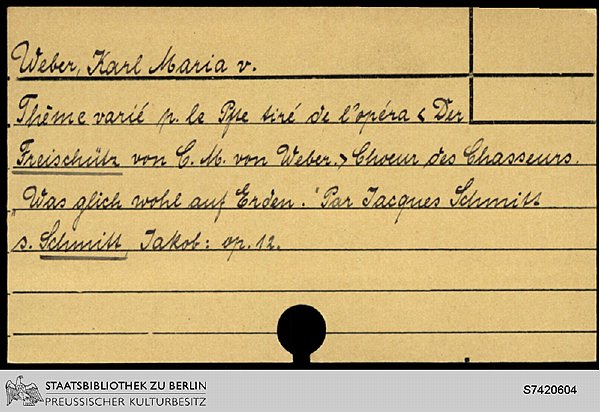 Weber, Karl Maria v.
Thême varié p. le Pfte tiré de l'opéra < Der
Freischütz von C. M. von Weber. > Choeur des Chasseurs.
"Was glich wohl auf Erden." Par Jacques Schmitt
s. Schmitt, Jakob: op. 12.
STAATSBIBLIOTHEK ZU BERLIN
PREUSSISCHER KULTURBESITZ
S7420604